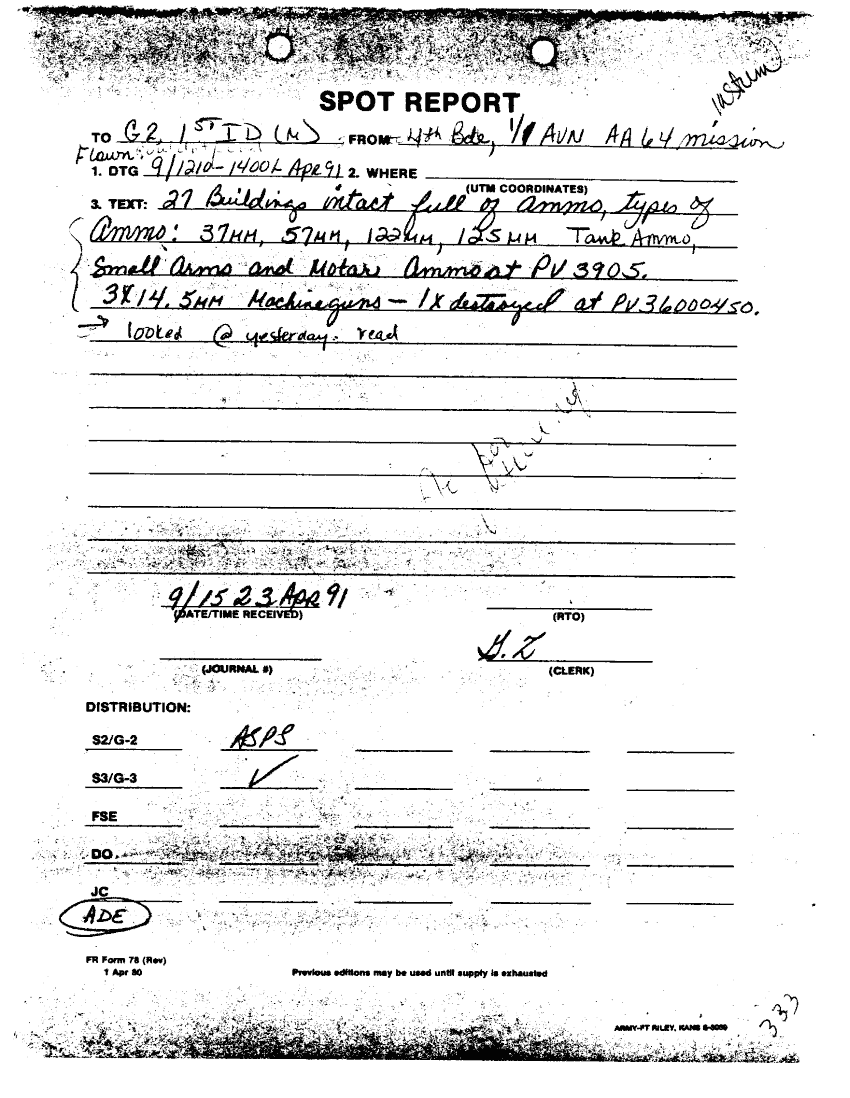 SPOT REPORT
TO G2, 1ST ID (M) FROM 4th Bde, 1/1 AVN AA64 mission
Flown
1. DTG 9/1210-1400L Apr 91 2. WHERE
(UTM COORDINATES)
3. TEXT: 27 Buildings intact full of ammo, types of
Ammo: 37MM, 57MM, 122MM, 125MM Tank Ammo,
Small Arms and Motar Ammo at PV 3905.
3X14.5MM Machineguns - 1X destroyed at PV36000450.
→ looked @ yesterday. read
9/1523 APR 91
(DATE/TIME RECEIVED) (RTO)
G.Z
(JOURNAL #) (CLERK)
DISTRIBUTION:
S2/G-2 ASPS
S3/G-3 ✓
FSE
DO
JC
ADE
FR Form 78 (Rev)
1 Apr 80 Previous editions may be used until supply is exhausted
ARMY-FT RILEY, KANS
333